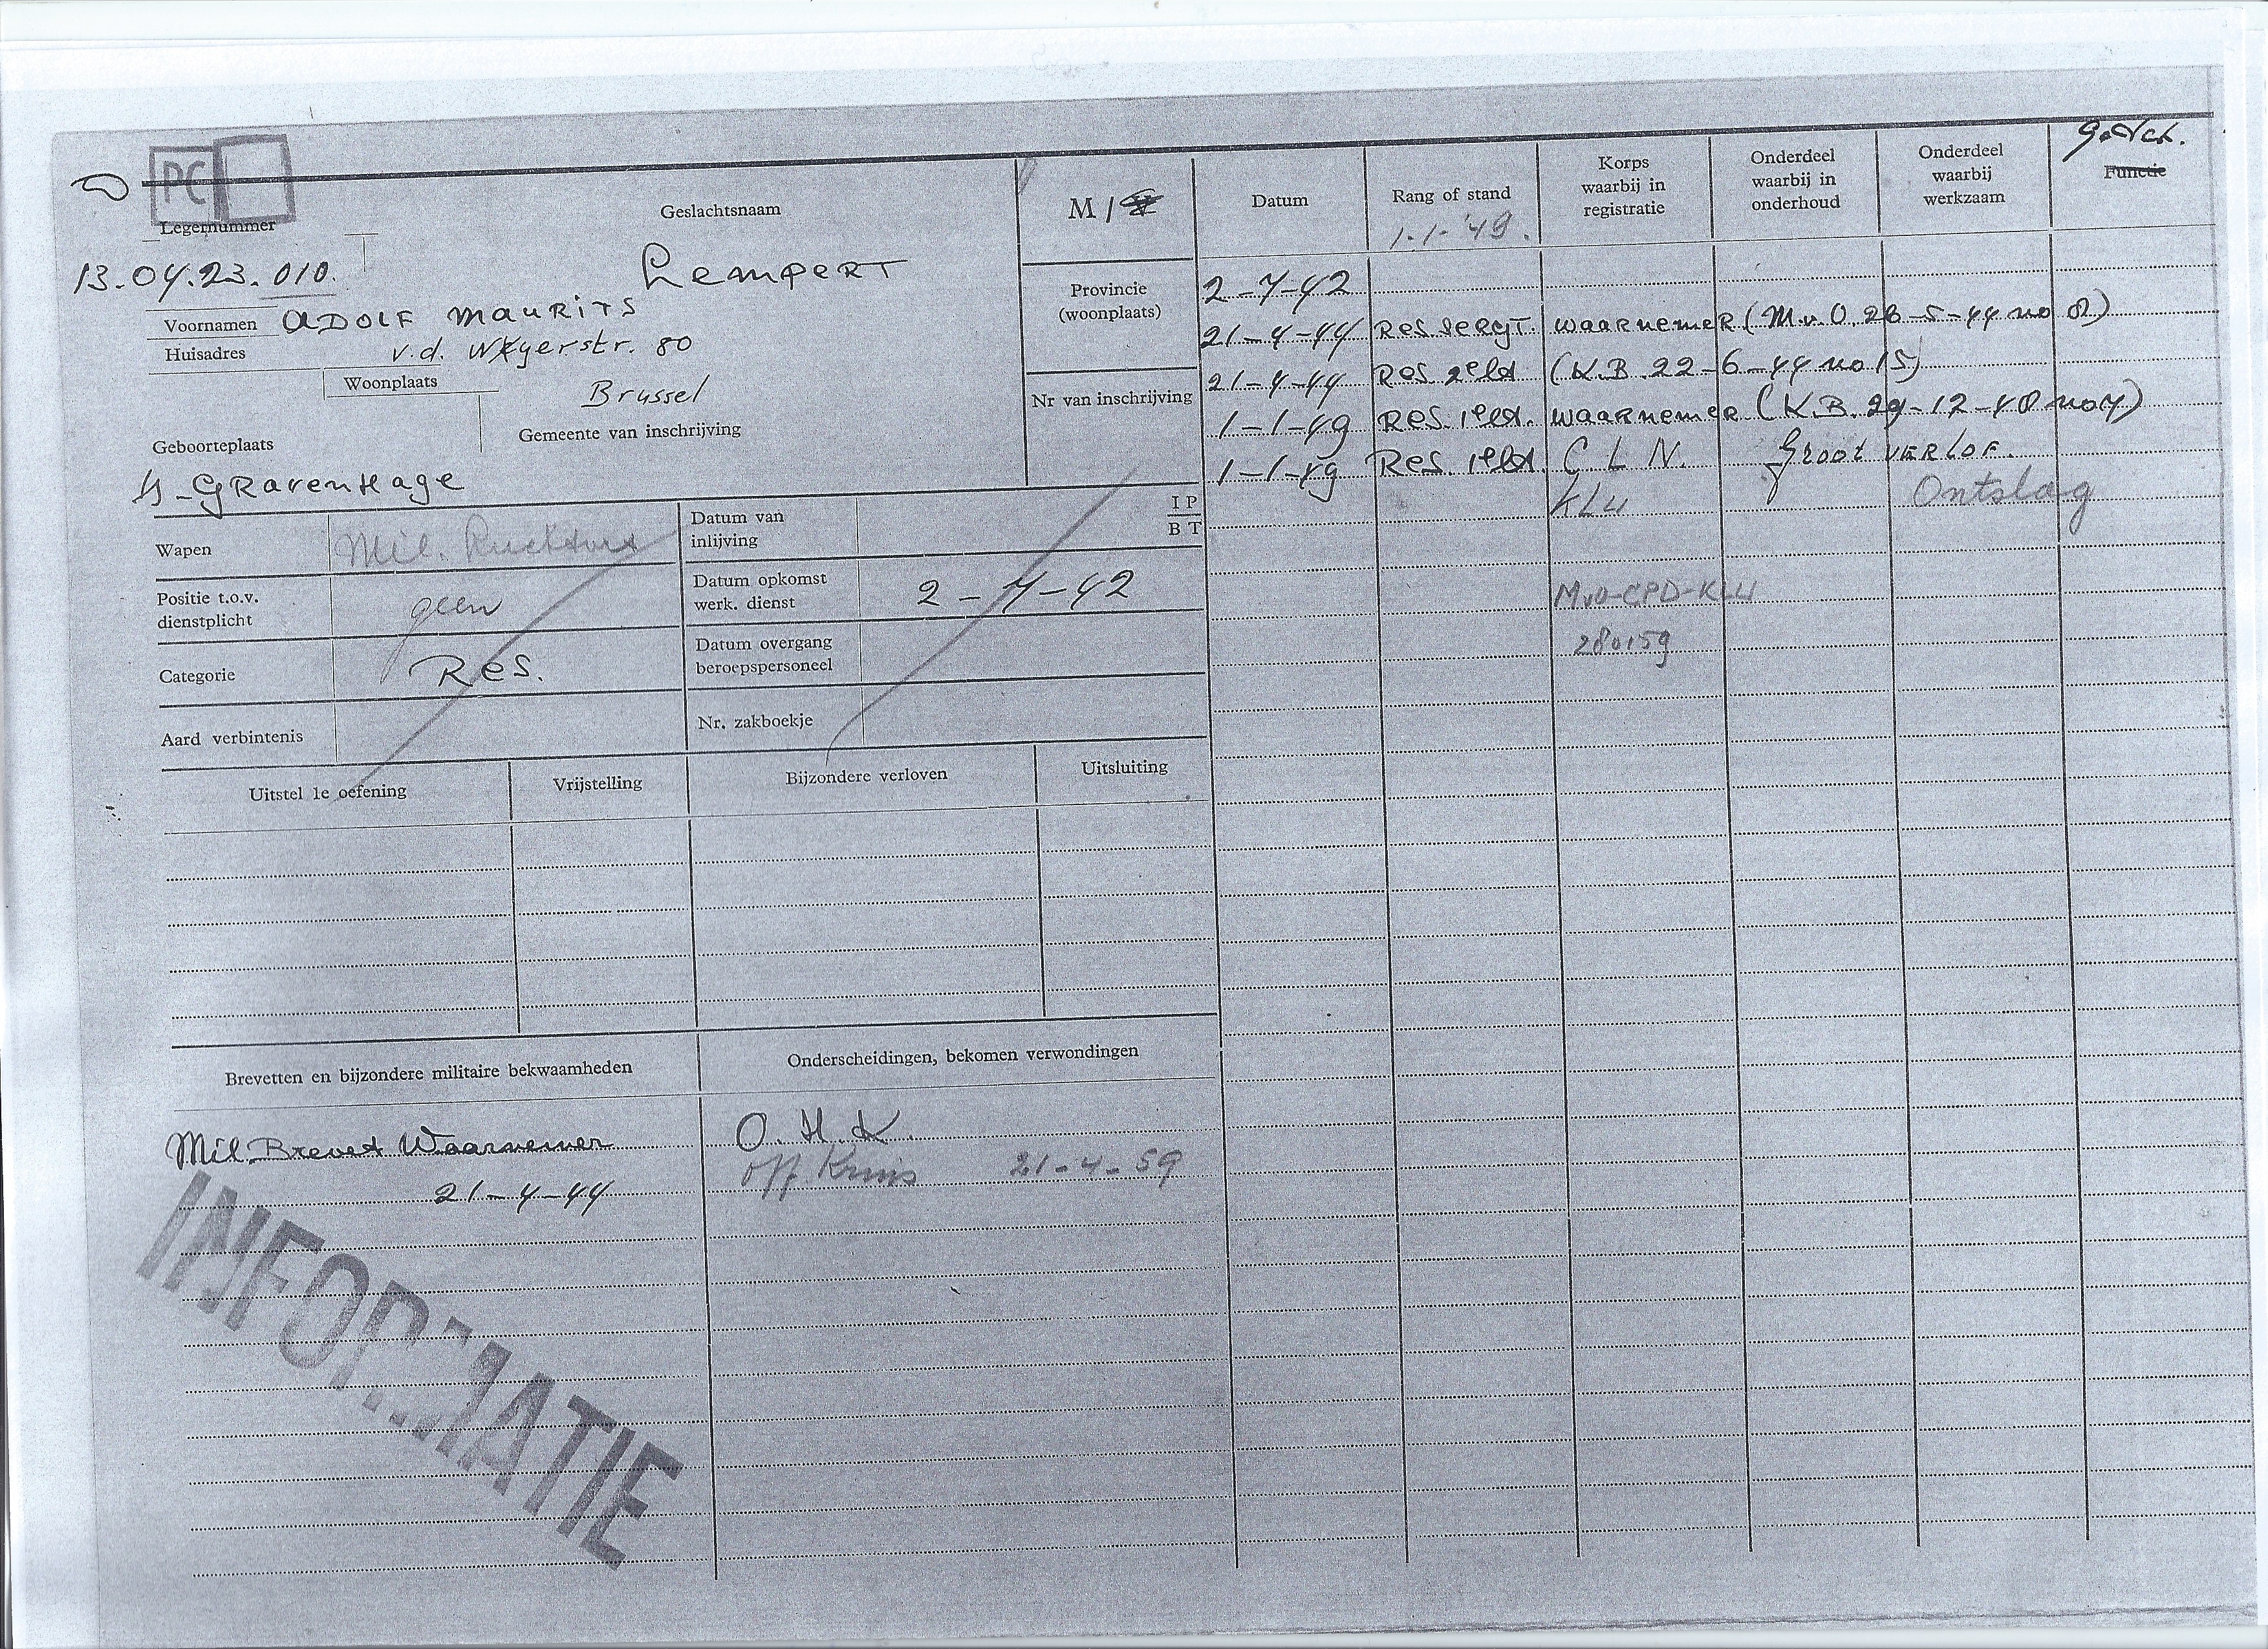 PC
Legernummer
13.04.23.010.
Geslachtsnaam
Lempert
Voornamen ADOLF MAURITS
Huisadres v.d. Weyerstr. 80
Woonplaats
Brussel
Geboorteplaats
Gemeente van inschrijving
's-GRavenHage
M/
Provincie
(woonplaats)
Nr van inschrijving
Wapen Mil.
Positie t.o.v.
dienstplicht geen
Categorie Res.
Aard verbintenis
Datum van
inlijving
I P
B T
Datum opkomst
werk. dienst 2-7-42
Datum overgang
beroepspersoneel
Nr. zakboekje
Uitstel 1e oefening Vrijstelling Bijzondere verloven Uitsluiting
Brevetten en bijzondere militaire bekwaamheden
Mil. Brevet Waarnemer
21-4-44
Onderscheidingen, bekomen verwondingen
O.H.K.
Off Kruis 21-4-59
INFORMATIE
Datum
Rang of stand
1-1-'49.
Korps
waarbij in
registratie
Onderdeel
waarbij in
onderhoud
Onderdeel
waarbij
werkzaam
Functie
2-7-42
21-4-44 Res sergt. waarnemer (M.v.O. 26-5-44 no
21-4-44 Res 2e lt (K.B. 22-6-44 no 15)
1-1-49 Res. 1e lt. waarnemer (K.B. 29-12-48 no 4)
1-1-49 Res. 1e lt. C L N. Groot VERLOF.
KLu Ontslag
MvO-CPD-KLU
280159